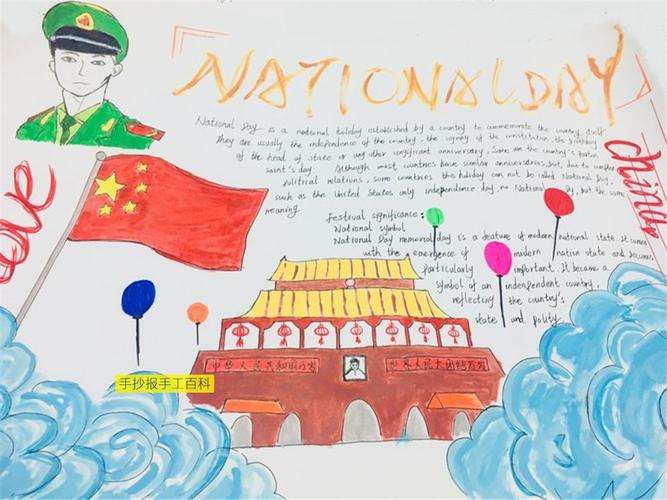 NATIONAL DAY
National Day is a national holiday established by a country to commemorate the country itself
They are usually the independence of the country, the signing of the constitution, the birthday
of the head of state or any other significant anniversary; Some are the country's patron
saint's day. Although most countries have similar anniversaries, but, due to complex
political relations, some countries this holiday can not be called National Day,
such as the United States only independence day, no National Day, but the same
meaning
festival significance:
National symbol
National Day memorial day is a feature of modern national state. It comes
with the emergence of modern nation state and becomes
particularly important. It became a
symbol of an independent country,
reflecting the country's
state and polity.
love
china
中华人民共和国万岁
世界人民大团结万岁
手抄报手工百科